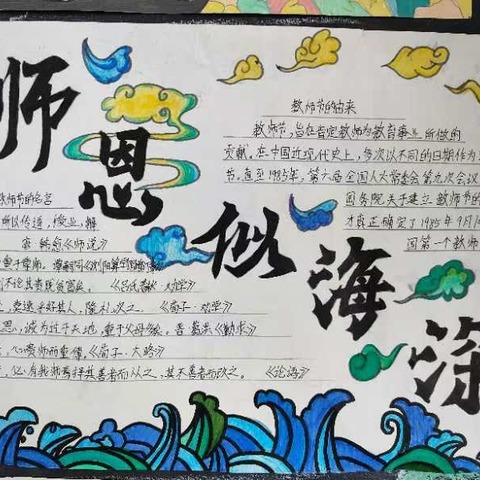 师恩似海深
教师节的由来
教师节，旨在肯定教师为教育事业所做的
贡献。在中国近现代史上，多次以不同的日期作为
节。直至1985年，第六届全国人大常委会第九次会议
国务院关于建立教师节的
才真正确定了1985年9月1
国第一个教师
教师节的名言
所以传道，授业，解
韩愈《师说》
《吕氏春秋·劝学》
隆礼次之。《荀子·劝学》
恩，诚为过于天地，重于父母
心贵师而重傅。《荀子·大略》
必有我师焉择其善者而从之，其不善者而改之。《论语》